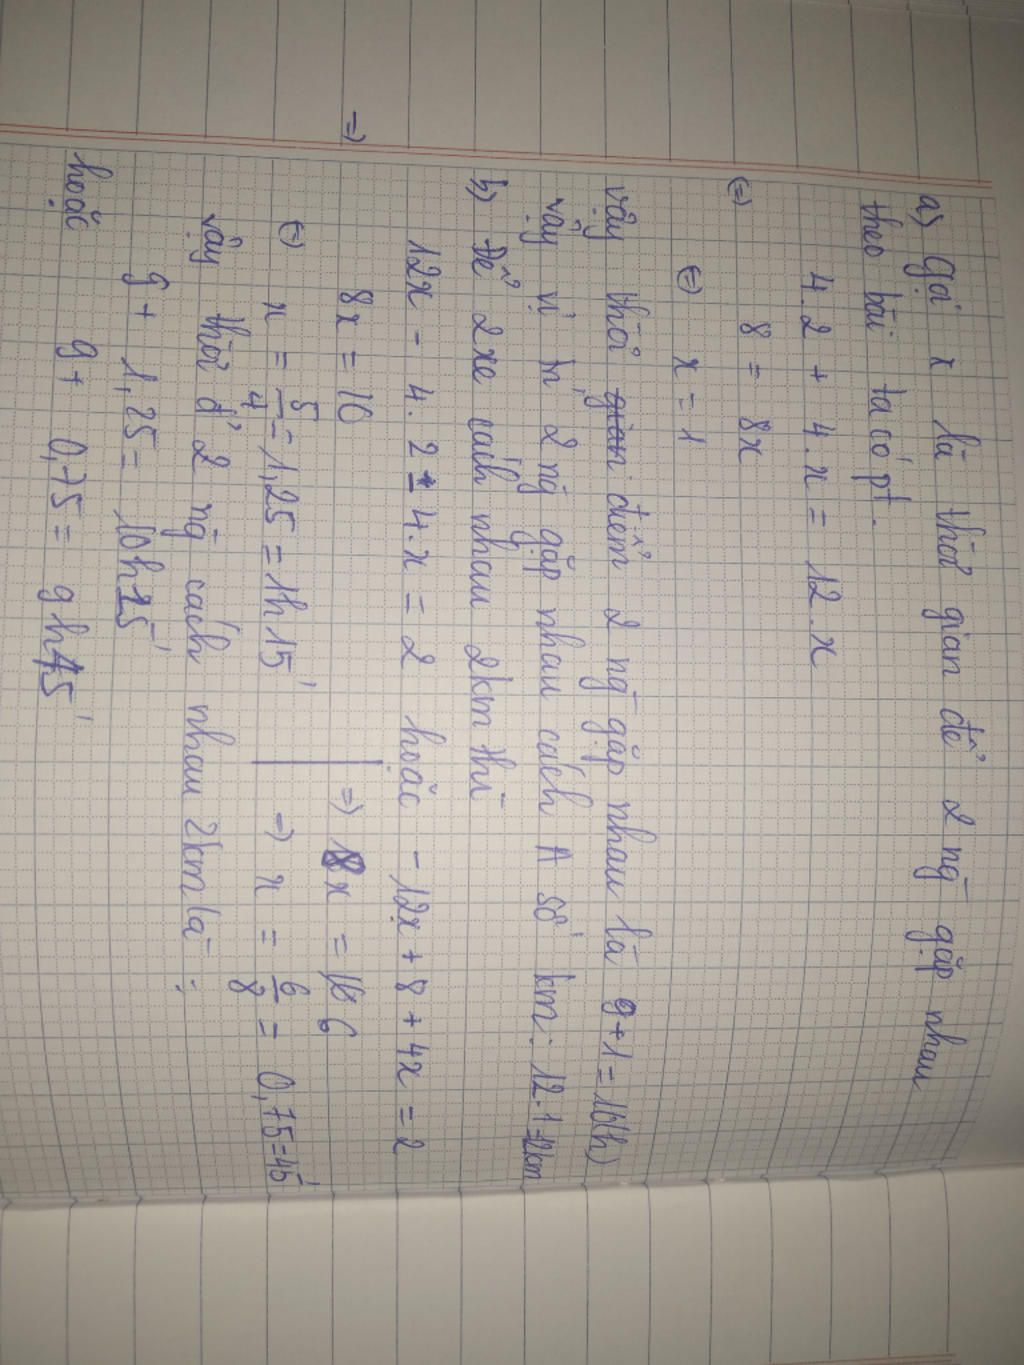 a) Gọi x là thời gian để 2 ng̃ gặp nhau
theo bài ta có pt.
4.2 + 4.x = 12.x
(=) 8 = 8x
(=) x = 1
vậy thời điểm 2 ng̃ gặp nhau là 9+1=10(h)
vậy vị tr 2 ng̃ gặp nhau cách A số km: 12.1=12km
b) Để 2 xe cách nhau 2km thì
12x - 4.2 - 4.x = 2 hoặc -12x + 8 + 4x = 2
=) 8x = 10 =) 8x = 6
(=) x = 5/4 = 1,25 = 1h15' =) x = 6/8 = 0,75=45'
vậy thời đ' 2 ng̃ cách nhau 2km là:
9 + 1,25 = 10h15'
hoặc 9 + 0,75 = 9h45'